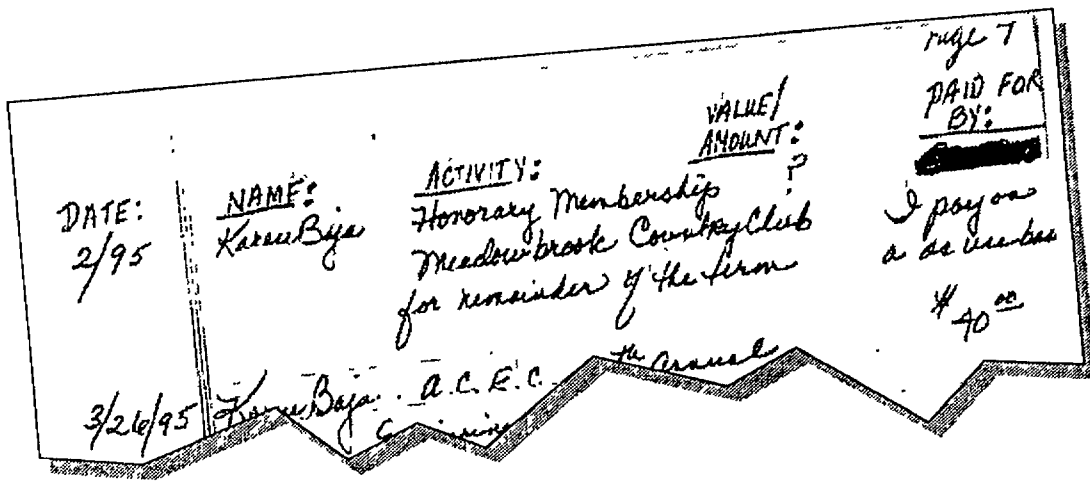 Page 7
DATE: NAME: ACTIVITY: VALUE/ AMOUNT: PAID FOR BY:
2/95 Karen Baja Honorary Membership ?
Meadowbrook Country Club I pay on
for remainder of the term a as use bas
$40.00
3/26/95 Karen Baja A.C.E.C. th annual